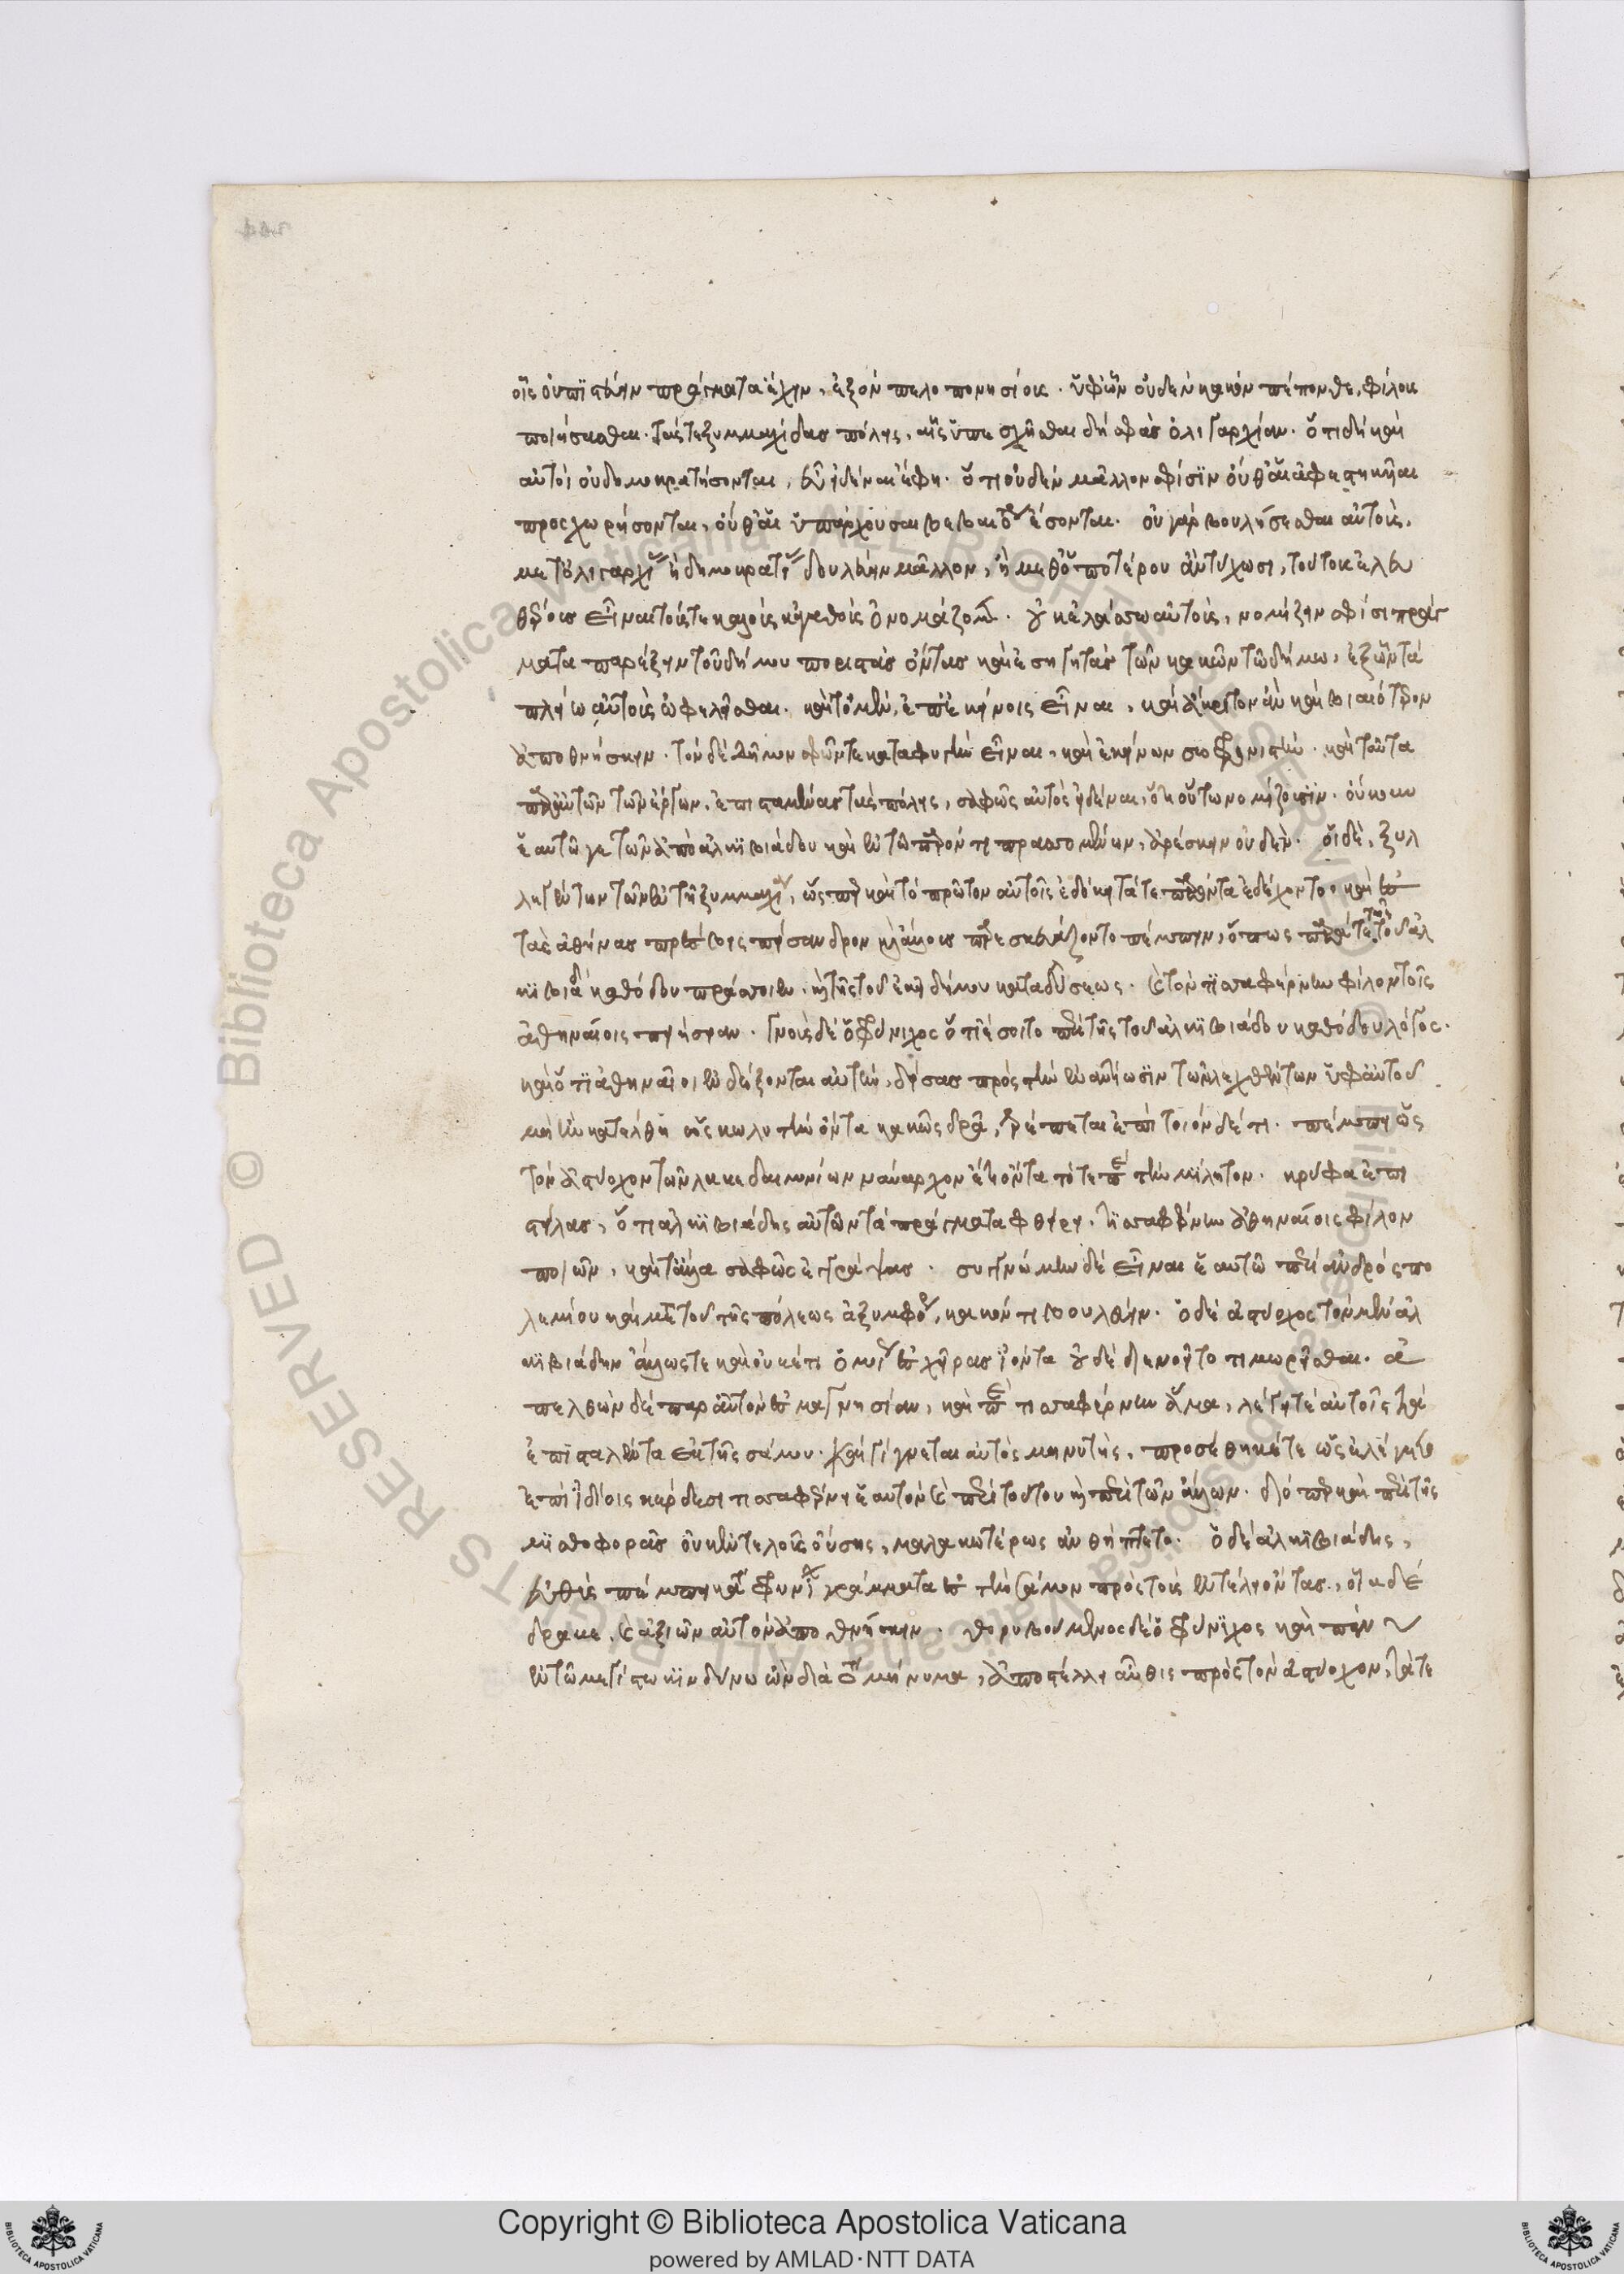 οἷς οὐ πιστεύειν πράγματα ἔχειν, ἐξὸν πελοπονησίοις. ὑφ' ὧν οὐδὲν κακὸν πέπονθε, φίλοις
ποιήσασθαι. τάς τε ξυμμαχίδας πόλεις, αἷς ὑπεσχῆσθαι δὴ σφᾶς ὀλιγαρχίαν. ὅτι δὴ καὶ
αὐτοὶ οὐ δημοκρατήσονται, εὖ εἰδέναι ἔφη. ὅτι οὐδὲν μᾶλλον σφίσιν οὔθ' αἱ ἀφεστηκυῖαι
προσχωρήσονται, οὔθ' αἱ ὑπάρχουσαι βεβαιότεραι ἔσονται. οὐ γὰρ βουλήσεσθαι αὐτοὺς,
μετ' ὀλιγαρχίας ἢ δημοκρατίας δουλεύειν μᾶλλον, ἢ μεθ' ὁποτέρου ἂν τύχωσι, τούτοις ἐλευ
θέρους εἶναι τούς τε καλοὺς κἀγαθοὺς ὀνομαζομένους. οὐκ ἐλάσσω αὐτοὺς, νομίζειν σφίσι πράγ
ματα παρέξειν τοῦ δήμου ποριστὰς ὄντας καὶ ἐσηγητὰς τῶν κακῶν τῶ δήμω, ἐξ ὧν τὰ
πλείω αὐτοὺς ὠφελεῖσθαι. καὶ τὸ μὲν, ἐπ' ἐκείνοις εἶναι, καὶ ἄκριτον ἂν καὶ βιαιότερον
ἀποθνήσκειν. τὸν δὲ δῆμον σφῶν τε καταφυγὴν εἶναι, καὶ ἐκείνων σωφρονιστήν. καὶ ταῦτα
παρ' αὐτῶν τῶν ἔργων, ἐπισταμένας τὰς πόλεις, σαφῶς αὐτὸς εἰδέναι, ὅτι οὕτω νομίζουσιν. οὔκουν
ἑαυτῶ γε τῶν ἀπὸ ἀλκιβιάδου καὶ ἐν τῶ παρόντι πρασσομένων, ἀρέσκειν οὐδέν. οἱ δὲ, ξυλ
λεγέντων τῶν ἐν τῆ ξυμμαχία, ὥσπερ καὶ τὸ πρῶτον αὐτοῖς ἐδόκει τά τε παρόντα ἐδέχοντο, καὶ ἐς
τὰς ἀθήνας πρέσβεις πείσανδρον καὶ ἄλλους παρεσκευάζοντο πέμπειν, ὅπως περί τε τῆς τοῦ ἀλ
κιβιάδου καθόδου πράσσοιεν, καὶ τῆς τοῦ ἐκεῖ δήμου καταλύσεως. καὶ τὸν τισσαφέρνην φίλον τοῖς
ἀθηναίοις ποιήσειαν. γνοὺς δὲ ὁ φρύνιχος ὅτι ἔσοιτο περὶ τῆς τοῦ ἀλκιβιάδου καθόδου λόγος.
καὶ ὅτι ἀθηναῖοι ἐνδέξονται αὐτὴν, δείσας πρὸς τὴν ἐναντίωσιν τῶν λεχθέντων ὑφ' αὑτοῦ
μὴ ἢν κατέλθη ὡς κωλυτὴν ὄντα κακῶς δρᾶ, τρέπεται ἐπὶ τοιόνδέ τι. πέμπει ὡς
τὸν ἀστύοχον τῶν λακεδαιμονίων ναύαρχον ἔτι ὄντα τότε περὶ τὴν μίλητον. κρύφα ἐπι
στείλας, ὅτι ἀλκιβιάδης αὐτῶν τὰ πράγματα φθείρει, τισσαφέρνην ἀθηναίοις φίλον
ποιῶν, καὶ τἄλλα σαφῶς ἐγγράψας. συγγνώμην δὲ εἶναι ἑαυτῶ περὶ ἀνδρὸς πο
λεμίου καὶ μετὰ τοῦ τῆς πόλεως ἀξυμφόρου, κακόν τι βουλεύειν. ὁ δὲ ἀστύοχος τὸν μὲν ἀλ
κιβιάδην ἄλλως τε καὶ οὐκέτι ὁμοίως ἐς χεῖρας ἰόντα οὐδὲ διενοεῖτο τιμωρεῖσθαι. ἀ
πελθὼν δὲ παρ' αὐτὸν ἐς μαγνησίαν, καὶ παρὰ τισσαφέρνην ἅμα, λέγει τέ αὐτοῖς τὰ
ἐπισταλέντα ἐκ τῆς σάμου. καὶ γίγνεται αὐτὸς μηνυτὴς. προσέθηκέ τε ὡς ἐλέγετο
ἐπὶ ἰδίοις κέρδεσι τισσαφέρνει ἑαυτὸν καὶ περὶ τούτου καὶ περὶ τῶν ἄλλων. διόπερ καὶ περὶ τῆς
μισθοφορᾶς οὐκ ἐντελοῦς οὔσης, μαλακωτέρως ἀνθήπτετο. ὁ δὲ ἀλκιβιάδης,
εὐθὺς πέμπει κατὰ φρυνίχου γράμματα ἐς τὴν σάμον πρὸς τοὺς ἐν τέλει ὄντας, οἷα δέ
δρακε, καὶ ἀξιῶν αὐτὸν ἀποθνήσκειν. θορυβούμενος δὲ ὁ φρύνιχος καὶ πάνυ
ἐν τῶ μεγίστω κινδύνω ὢν διὰ τὸ μήνυμα, ἀποστέλλει αὖθις πρὸς τὸν ἀστύοχον, τά τε